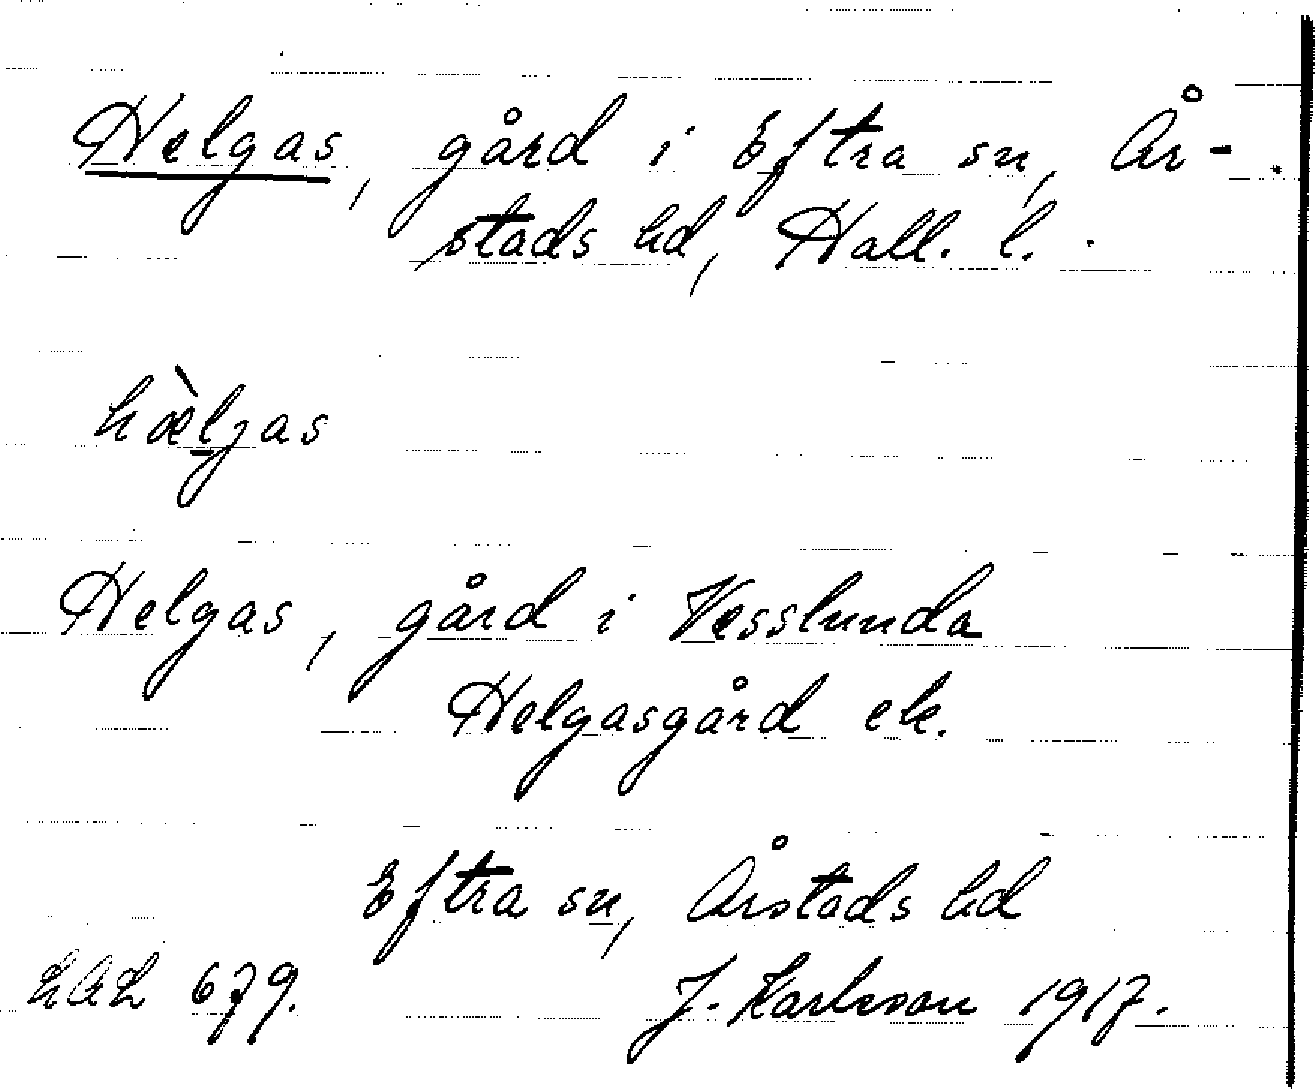 Helgas, gård i Eftra sn, År-
stads hd, Hall. l.
hæ̀ljas
Helgas, gård i Vesslunda
Helgasgård ek.
Eftra sn, Årstads hd
LAL 679. J. Karlsson 1917.